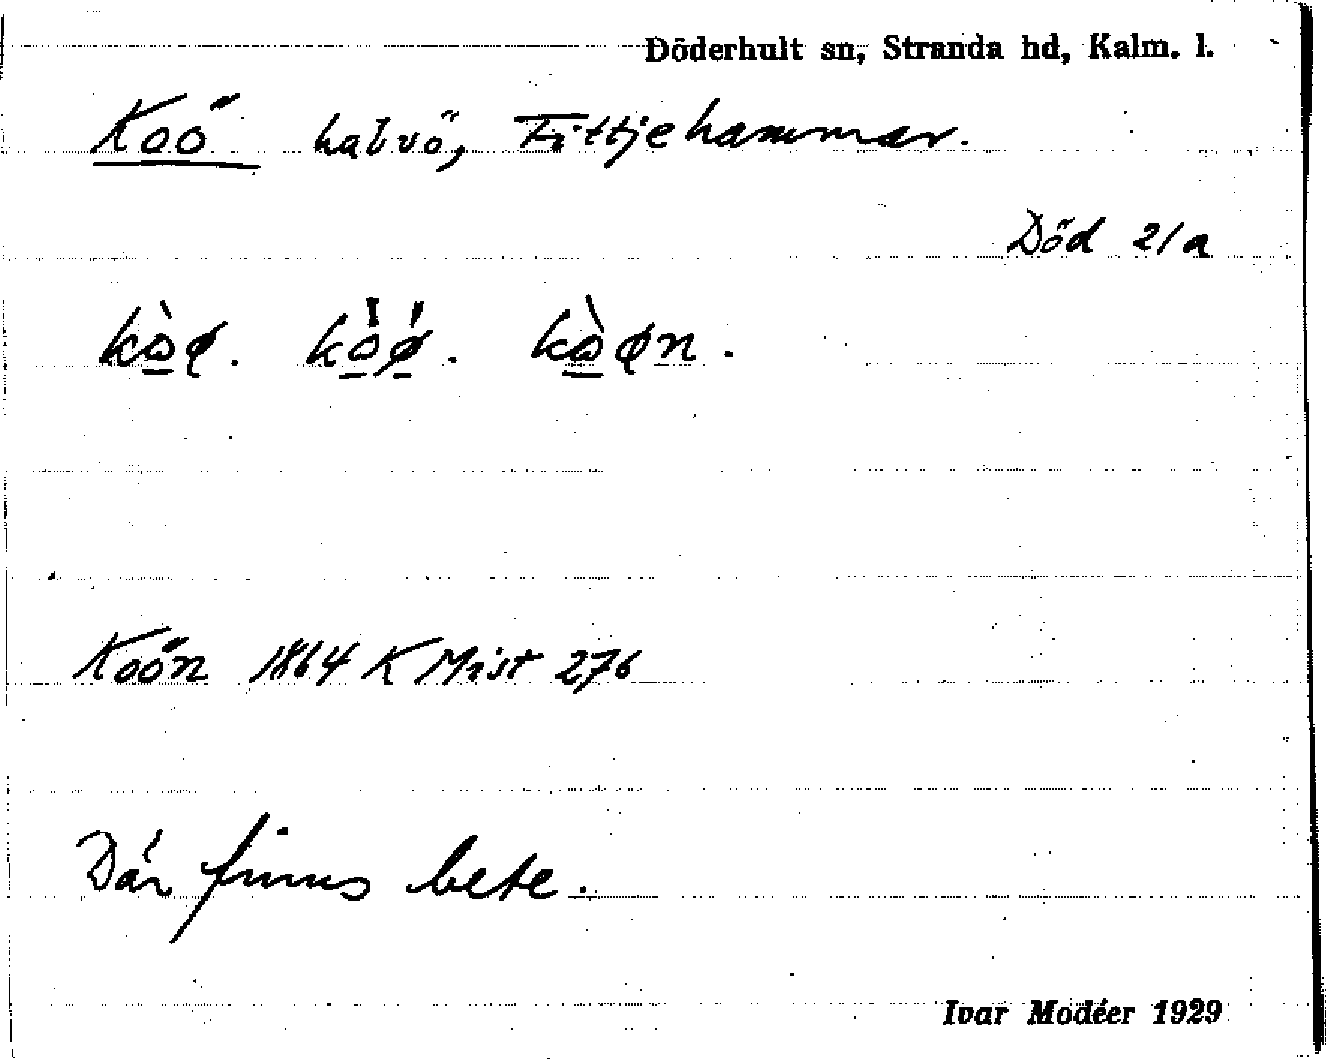 Döderhult sn, Stranda hd, Kalm. l.
Koö halvö, Fittjehammar.
Död 21a
kòø. kóǿ. kòøn.
Koön 1864 K Mist 276
Där finns bete.
Ivar Modéer 1929